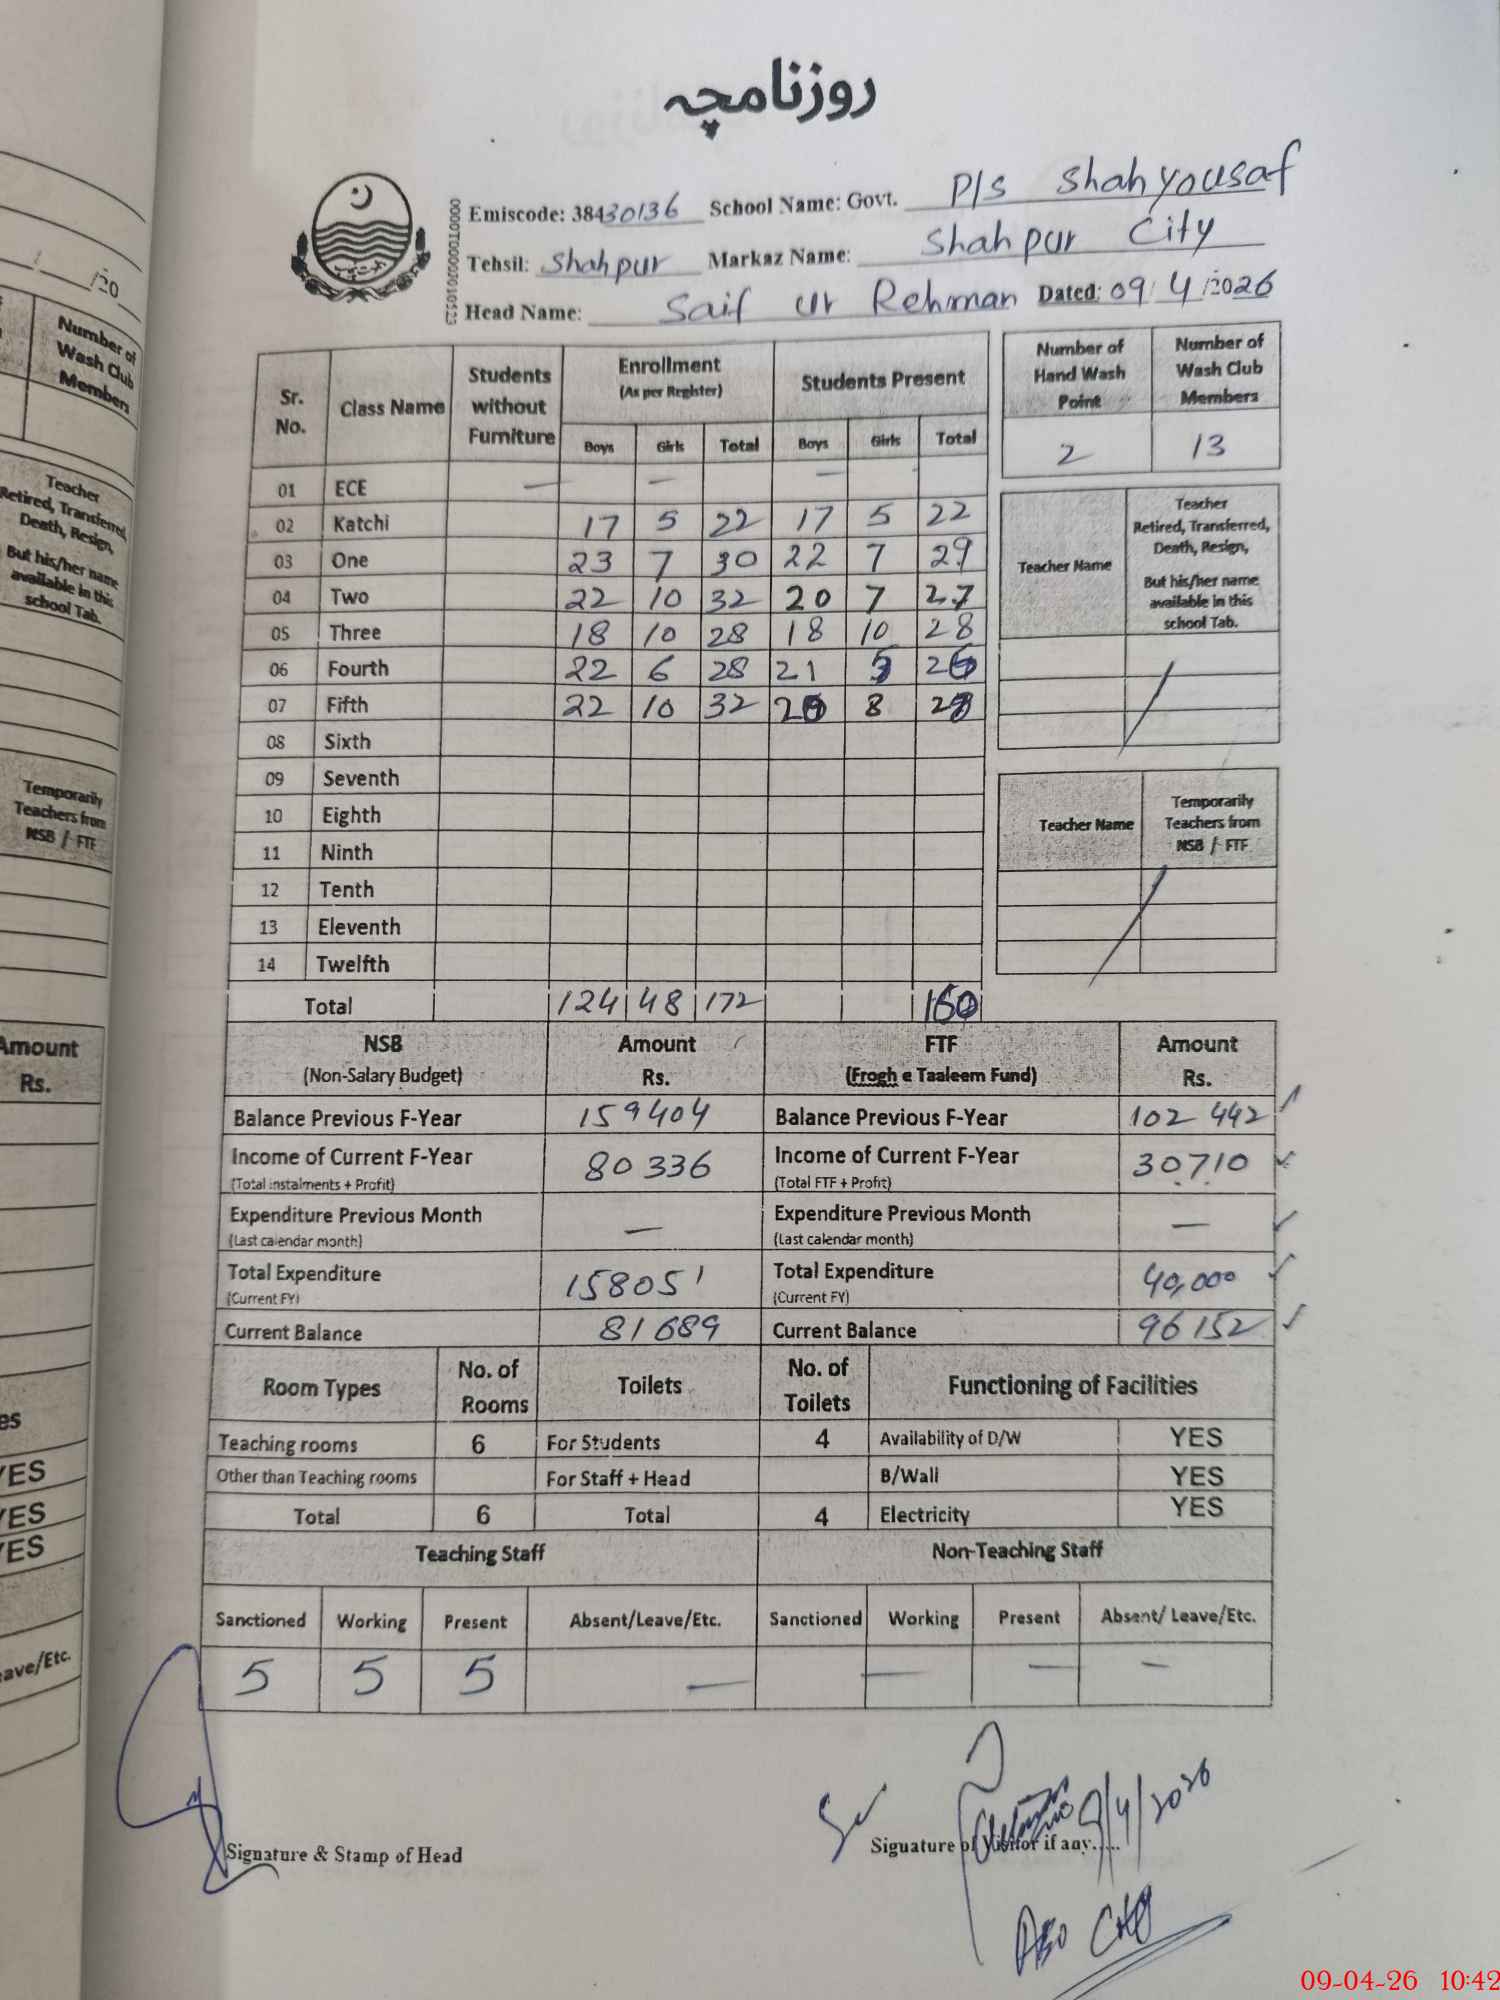 روزنامچہ
Emiscode: 38430136 School Name: Govt. P/S Shah yousaf
Tehsil: Shahpur Markaz Name: Shahpur City
Head Name: Saif ur Rehman Dated: 09/4/2026
Sr. No. Class Name Students without Furniture Enrollment (As per Register) Students Present
Boys Girls Total Boys Girls Total
01 ECE — — —
02 Katchi 17 5 22 17 5 22
03 One 23 7 30 22 7 29
04 Two 22 10 32 20 7 27
05 Three 18 10 28 18 10 28
06 Fourth 22 6 28 21 5 26
07 Fifth 22 10 32 20 8 28
08 Sixth
09 Seventh
10 Eighth
11 Ninth
12 Tenth
13 Eleventh
14 Twelfth
Total 124 48 172 160
Number of Hand Wash Point Number of Wash Club Members
2 13
Teacher Name Teacher Retired, Transferred, Death, Resign, But his/her name available in this school Tab.
Teacher Name Temporarily Teachers from NSB / FTF
NSB (Non-Salary Budget) Amount Rs. FTF (Frogh e Taaleem Fund) Amount Rs.
Balance Previous F-Year 159404 Balance Previous F-Year 102 442
Income of Current F-Year (Total instalments + Profit) 80336 Income of Current F-Year (Total FTF + Profit) 30710
Expenditure Previous Month (Last calendar month) — Expenditure Previous Month (Last calendar month) —
Total Expenditure (Current FY) 158051 Total Expenditure (Current FY) 40,000
Current Balance 81689 Current Balance 96152
Room Types No. of Rooms Toilets No. of Toilets Functioning of Facilities
Teaching rooms 6 For Students 4 Availability of D/W YES
Other than Teaching rooms For Staff + Head B/Wall YES
Total 6 Total 4 Electricity YES
Teaching Staff Non-Teaching Staff
Sanctioned Working Present Absent/Leave/Etc. Sanctioned Working Present Absent/ Leave/Etc.
5 5 5 — — — —
9/4/2026
Signature & Stamp of Head Siguature of Visitor if any.....
09-04-26 10:42
/20
Number of Wash Club Members
Teacher Retired, Transferred, Death, Resign, But his/her name available in this school Tab.
Temporarily Teachers from NSB / FTF
Amount Rs.
YES
YES
YES